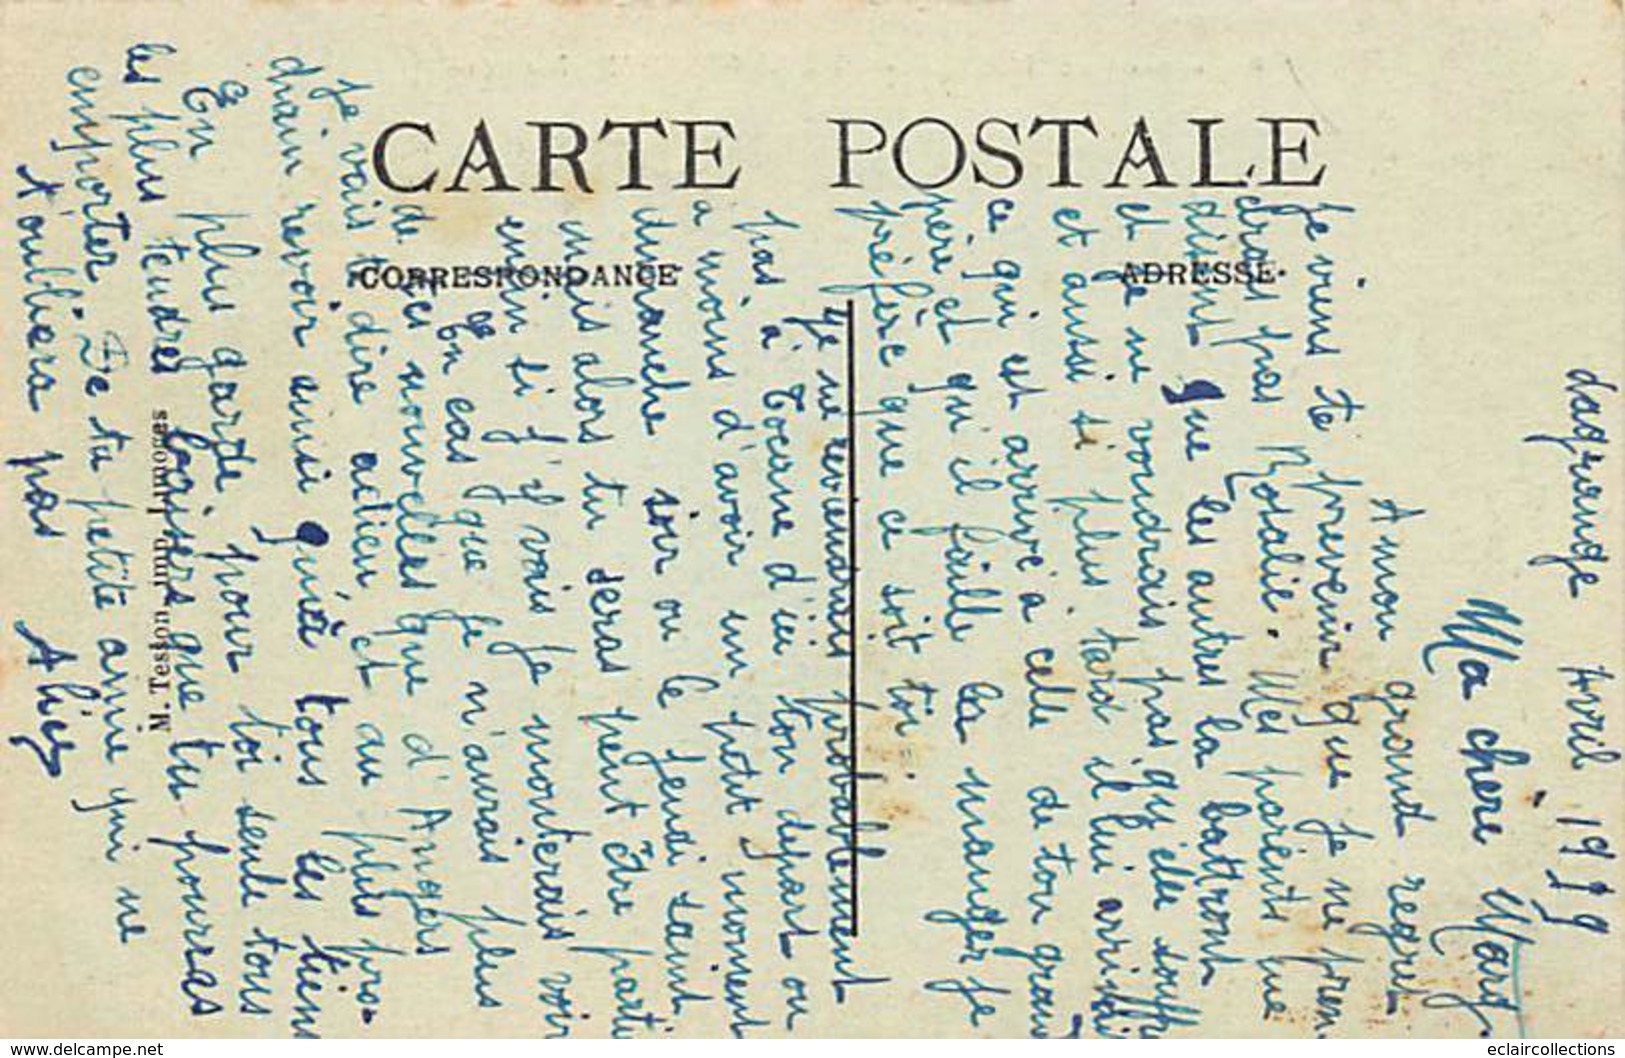 CARTE POSTALE
CORRESPONDANCE
ADRESSE
Lagrange Avril 1919
Ma chère Marg.
A mon grand regret
je viens te prévenir que je ne pren
drais pas Rosalie. Mes parents me
disent que les autres la battront
et je ne voudrais pas qu'elle souffre
et aussi si plus tard il lui arrivait
ce qui est arrivé à celle de ton grand
père et qu'il faille la manger je
préfère que ce soit toi
Je ne reviendrais probablement
pas à Tocane d'ici ton départ ou
a moins d'avoir un petit moment
dimanche soir ou le jeudi saint,
mais alors tu seras peut être partie
enfin si j'y vais je monterais voir
En cas que je n'aurais plus
de tes nouvelles que d'Angers
je vais te dire adieu et au plus pro-
chain revoir ainsi qu'à tous les tiens
En plus garde pour toi seule tous
les plus tendres baisers que tu pourras
emporter. De ta petite amie qui ne
t'oubliera pas
N. Tesson, imp. Limoges
eclaircollections
www.delcampe.net